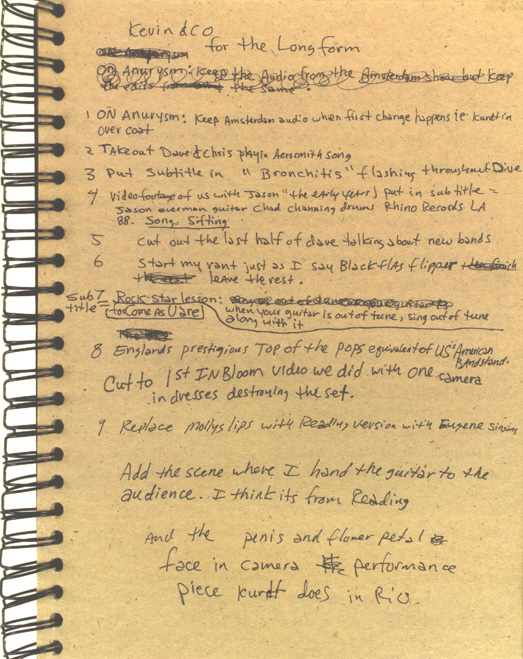 Kevin & CO
for the Long form
ON Anurysm: Keep the Audio from the Amsterdam show but keep
the edits the same
1 ON Anurysm: Keep Amsterdam audio when first change happens ie kurdt in
over coat
2 TAKE out Dave & Chris playin Aerosmith song
3 Put Subtitle in "Bronchitis" flashing throughout Dive
4 Video footage of us with Jason "the early years) put in subtitle =
Jason everman guitar Chad channing drums Rhino Records LA
88. Song Sifting
5 cut out the last half of dave talking about new bands
6 Start my rant just as I say Black flAg flipper then finish
leave the rest.
sub title = 7 Rock star lesson:
to Come As U are
when your guitar is out of tune, sing out of tune
along with it
8 Englands prestigious Top of the pops equivalent of US' American
Bandstand.
Cut to 1st IN Bloom video we did with one camera
in dresses destroying the set.
9 Replace mollys lips with Reading version with Eugene singing
Add the scene where I hand the guitar to the
audience. I think its from Reading
And the penis and flower petal
face in camera performance
piece kurdt does in Rio.